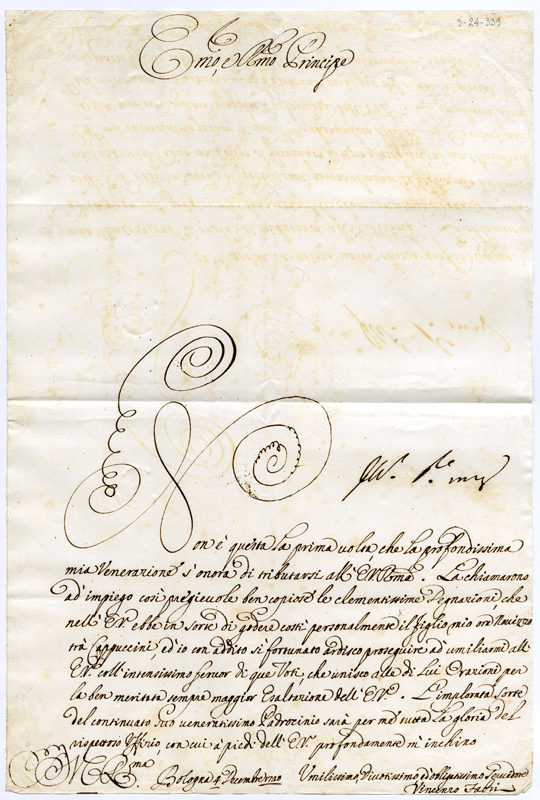 3-24-339
Emo, e Rmo Principe
Non è questa la prima volta, che la profondissima
mia Venerazione s'onora di tributarsi all'E.V. Rma. La chiamarono
ad' impiego così pregievole ben copiose le clementissime Degnazioni, che
nell'E.V. ebbe in sorte di godere costì personalmente il figlio mio ora Novizzo
trà Cappuccini, ed io con addito sì fortunato ardisco proseguire ad umiliarmi all'
E.V. coll'intensissimo fervor di que Voti, che unisco alle di Lui Orazioni per
la ben meritata sempre maggior Esaltazione dell'E.V. L'implorata sorte
del continuato Suo veneratissimo Padrocinio sarà per me tutta la gloria del
rispettoso Uffizio, con cui a' piedi dell'E.V. profondamente m'inchino
Bologna 4 Decembre
Umilissimo, Divotissimo ed obligatissimo Servidore
Vincenzo Fabri